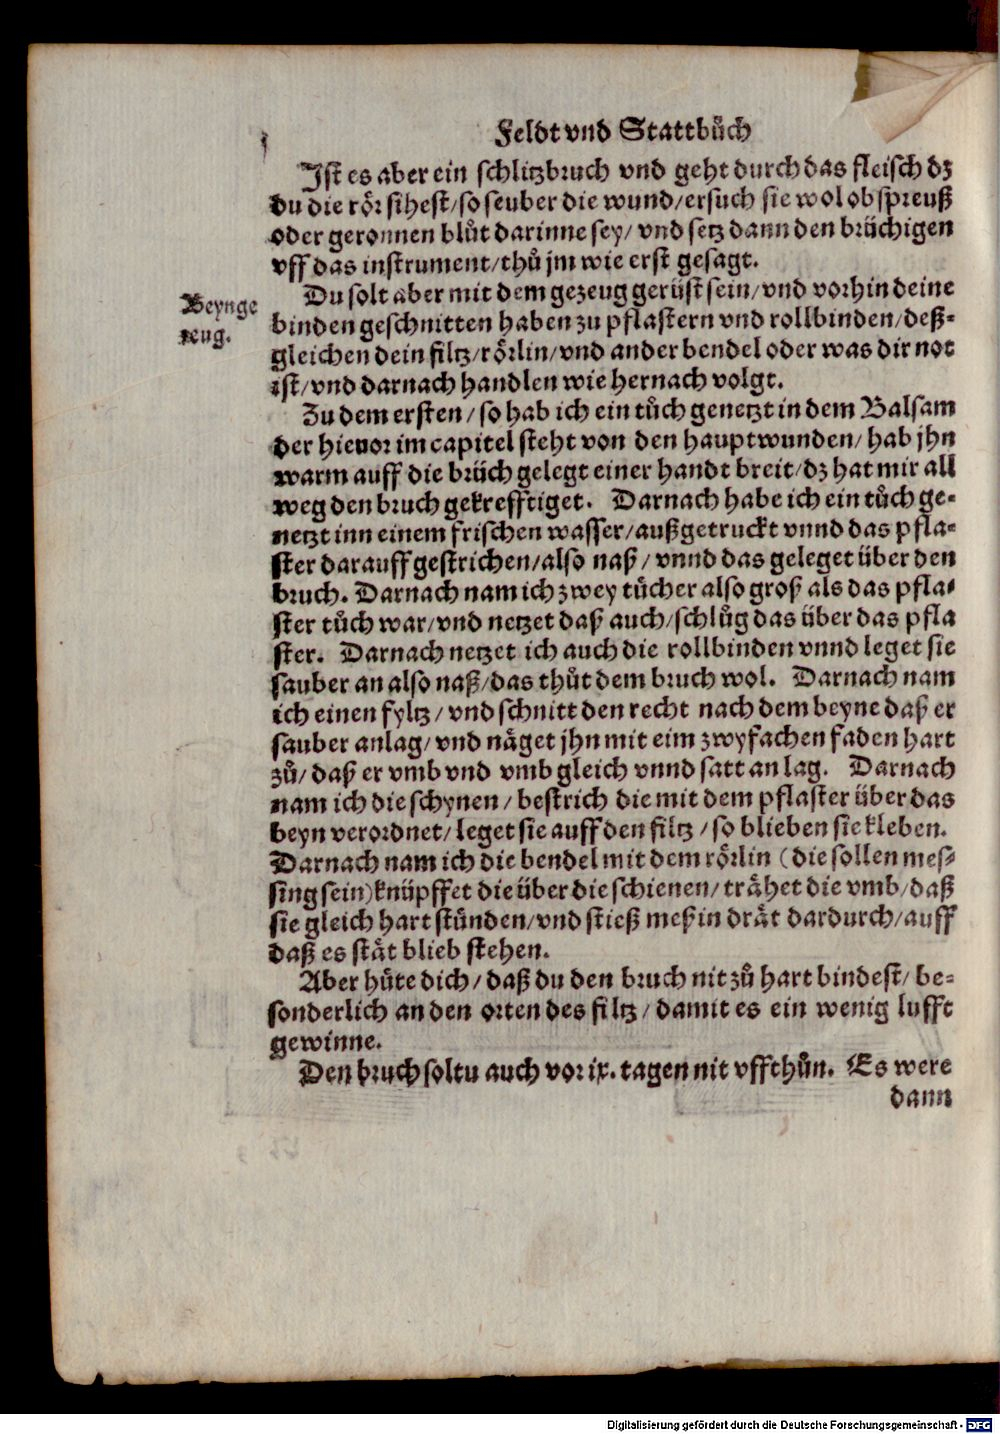 Feldt vnd Stattbůch
Jst es aber ein schlitzbruch vnd geht durch das fleisch dz
du die rör sihest/ so seuber die wund/ ersuch sie wol ob spreuß
oder geronnen blůt darinne sey/ vnd setz dann den brüchigen
vff das instrument/ thů jm wie erst gesagt.
Du solt aber mit dem gezeug gerüst sein/ vnd vorhin deine
Beynge
binden geschnitten haben zu pflastern vnd rollbinden/ deß-
zeug.
gleichen dein filtz/ rörlin/ vnd ander bendel oder was dir not
ist/ vnd darnach handlen wie hernach volgt.
Zu dem ersten/ so hab ich ein tůch genetzt in dem Balsam
der hieuor im capitel steht von den hauptwunden/ hab jhn
warm auff die brüch gelegt einer handt breit/ dz hat mir all
weg den bruch gekrefftiget. Darnach habe ich ein tůch ge-
netzt inn einem frischen wasser/ außgetruckt vnnd das pfla-
ster darauff gestrichen/ also naß/ vnnd das geleget über den
bruch. Darnach nam ich zwey tůcher also groß als das pfla-
ster tůch war/ vnd netzet daß auch/ schlůg das über das pfla
ster. Darnach netzet ich auch die rollbinden vnnd leget sie
sauber an also naß/ das thůt dem bruch wol. Darnach nam
ich einen fyltz/ vnd schnitt den recht nach dem beyne daß er
sauber anlag/ vnd näget jhn mit eim zwyfachen faden hart
zů/ daß er vmb vnd vmb gleich vnnd satt an lag. Darnach
nam ich die schynen/ bestrich die mit dem pflaster über das
beyn verordnet/ leget sie auff den filtz/ so blieben sie kleben.
Darnach nam ich die bendel mit dem rörlin (die sollen mes-
sing sein) knüpffet die über die schienen/ trähet die vmb/ daß
sie gleich hart stünden/ vnd stieß meßin drät dardurch/ auff
daß es stät blieb stehen.
Aber hüte dich/ daß du den bruch nit zů hart bindest/ be-
sonderlich an den orten des filtz/ damit es ein wenig lufft
gewinne.
Den bruch soltu auch vor ix. tagen nit vffthůn. Es were
dann
Digitalisierung gefördert durch die Deutsche Forschungsgemeinschaft - DFG